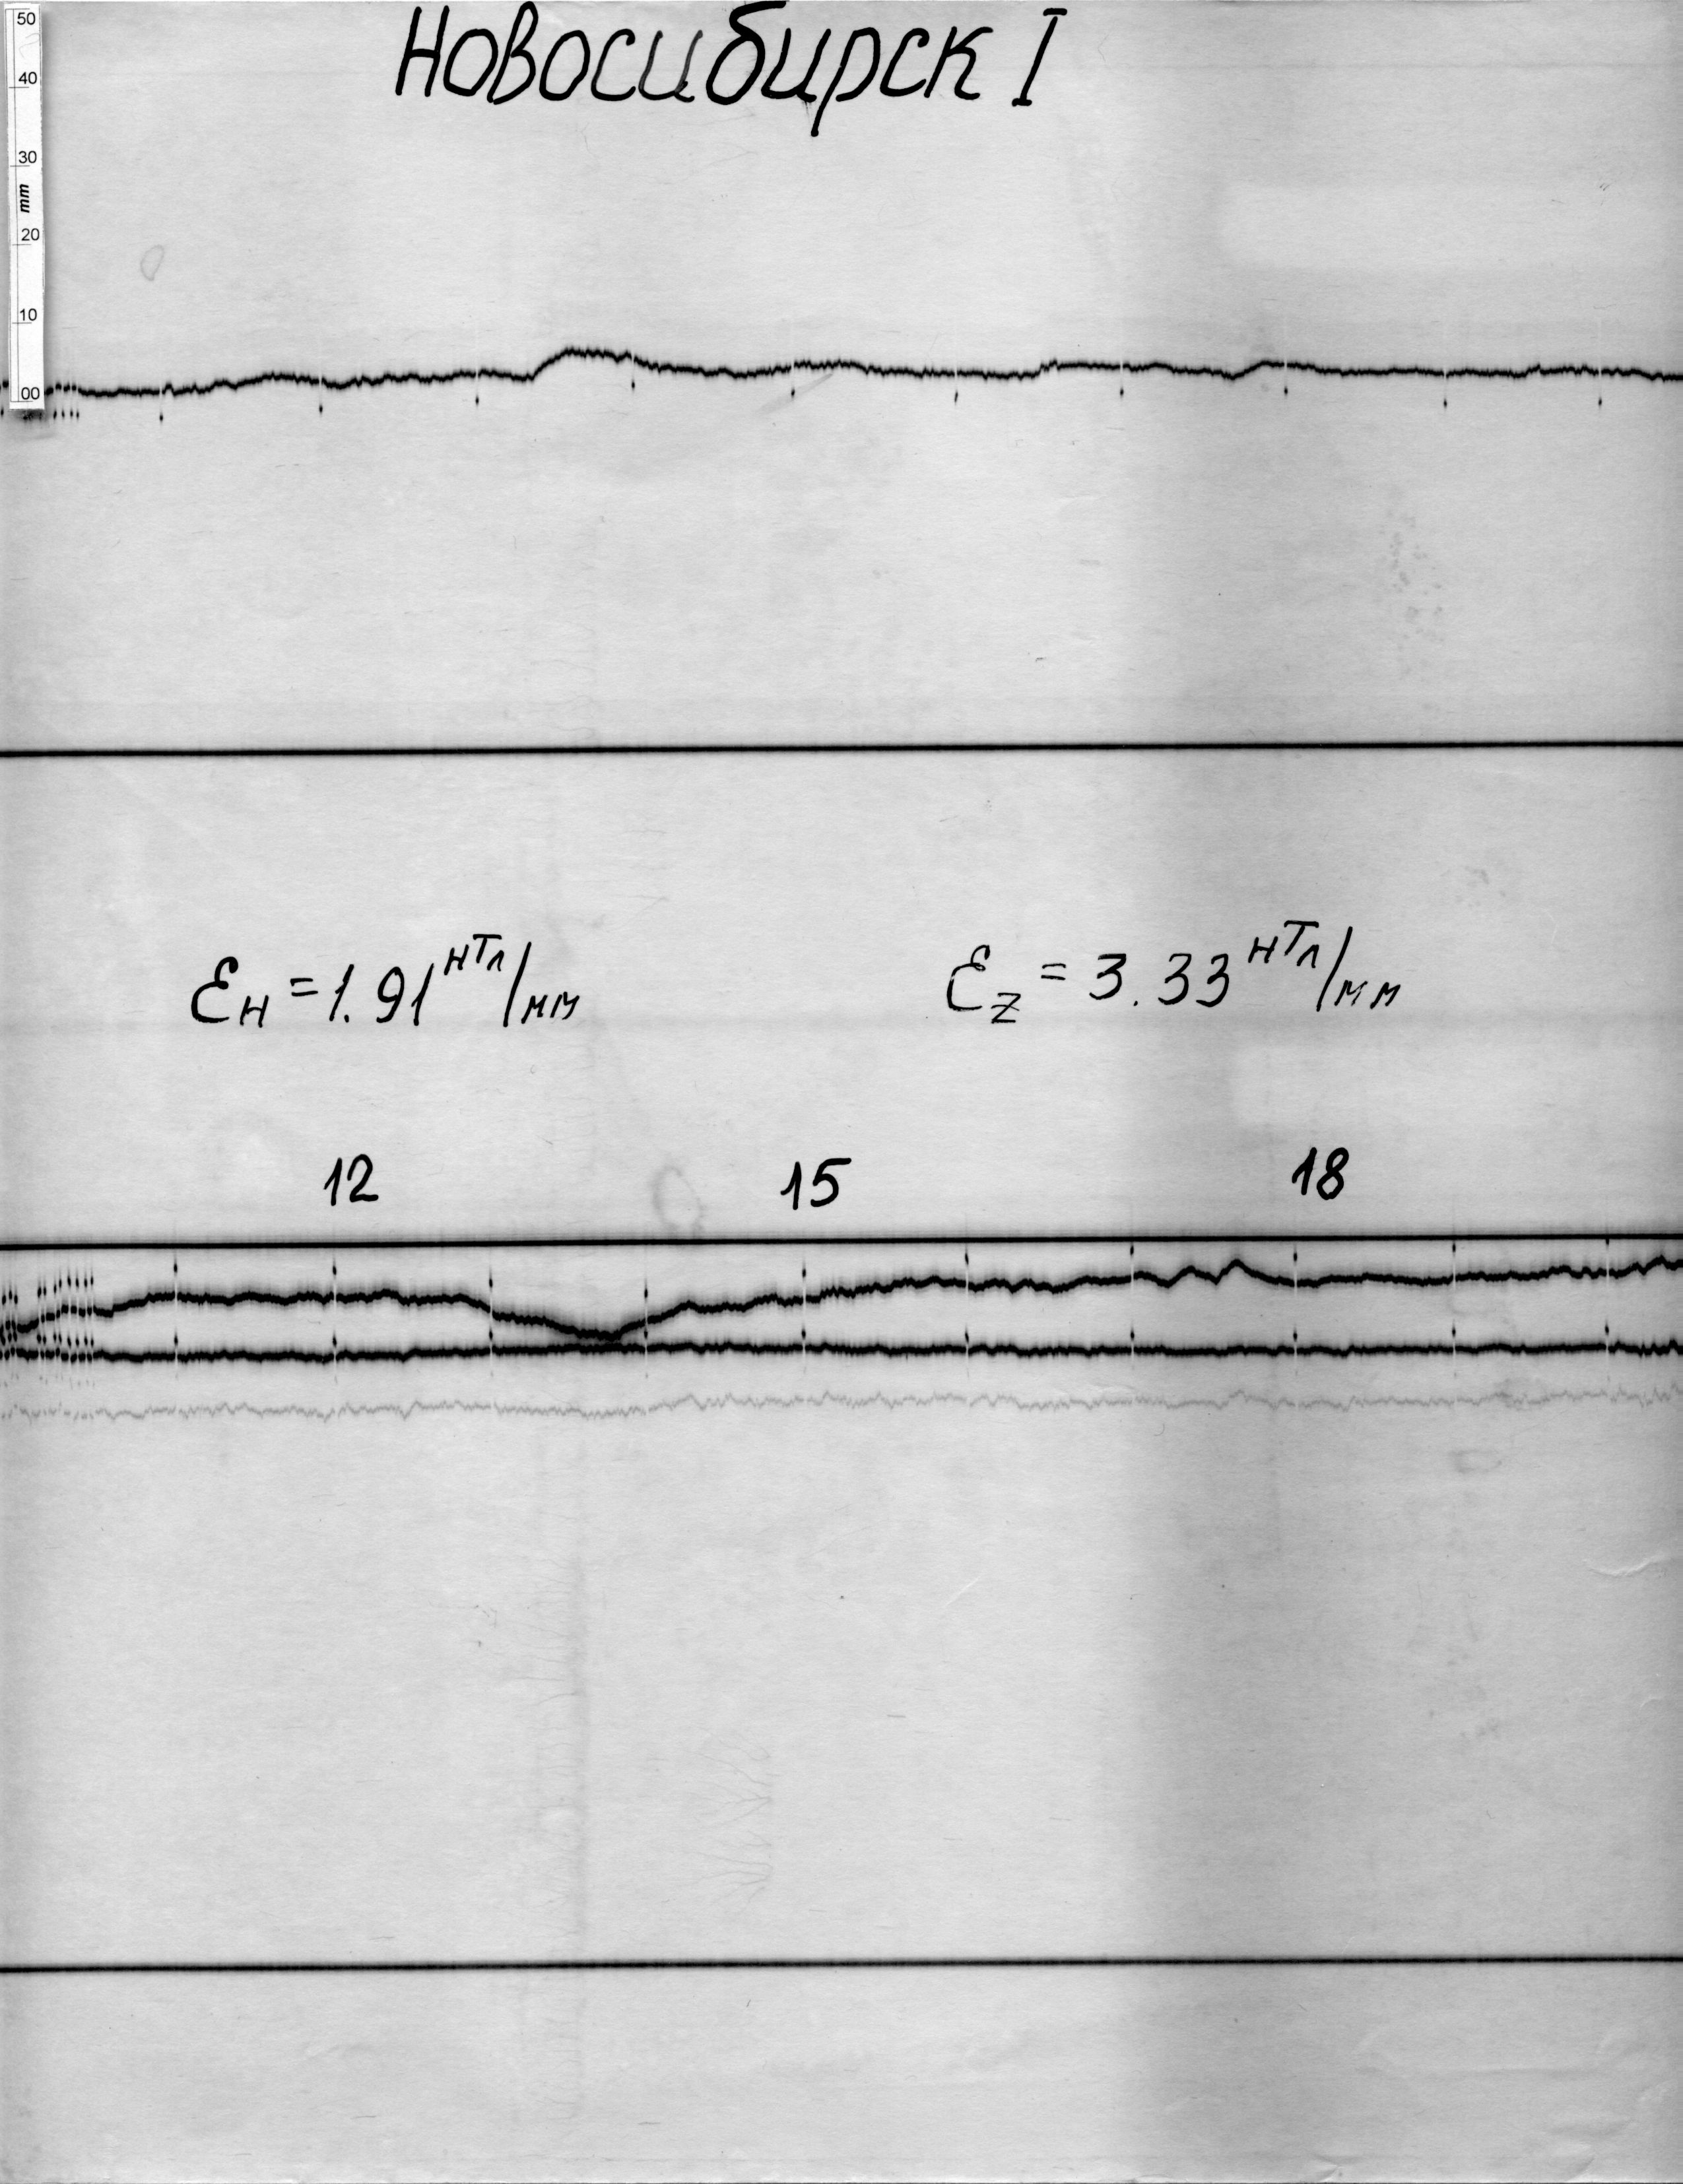 50
40
30
mm
20
10
00
Новосибирск I
Ɛн = 1.91 нТл/мм
Ɛz = 3.33 нТл/мм
12 15 18